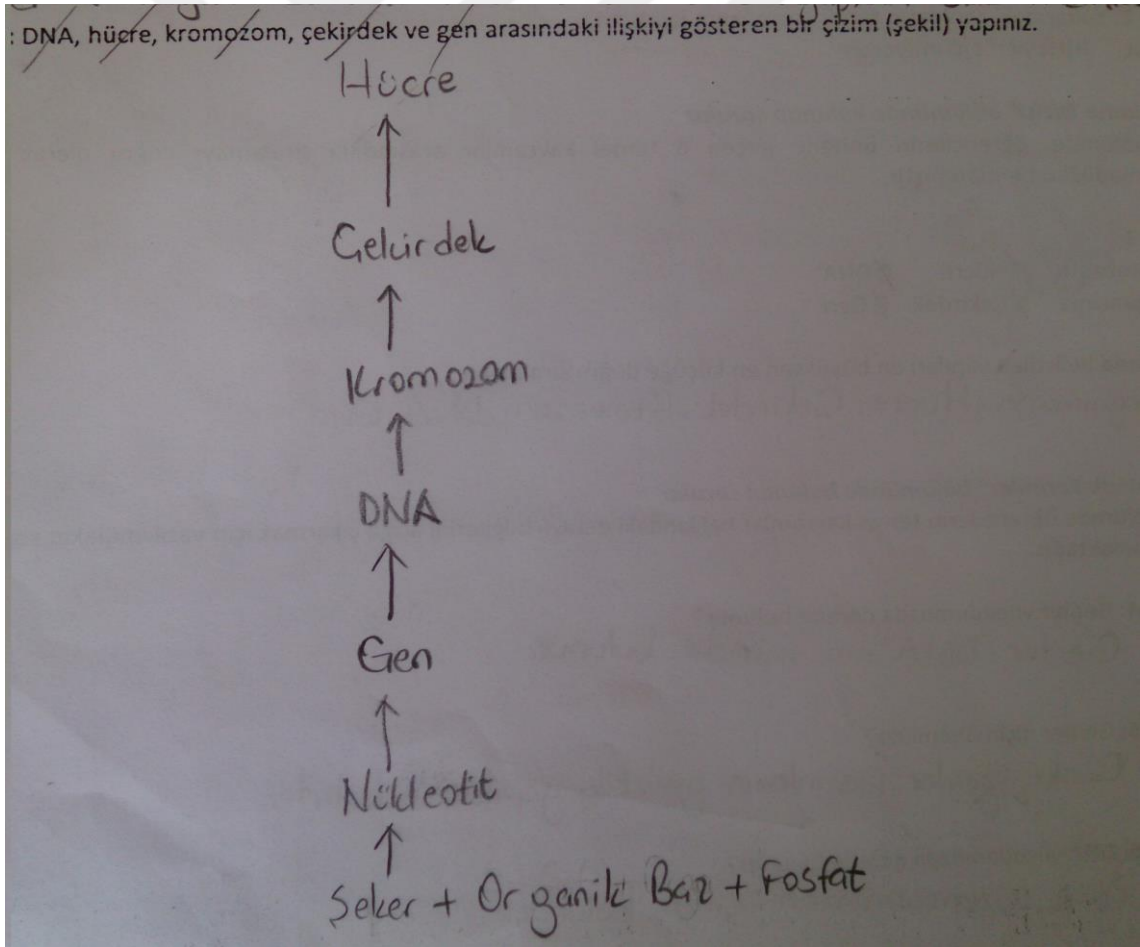 : DNA, hücre, kromozom, çekirdek ve gen arasındaki ilişkiyi gösteren bir çizim (şekil) yapınız.
Hücre
Çekirdek
Kromozom
DNA
Gen
Nükleotit
Şeker + Organik Baz + Fosfat